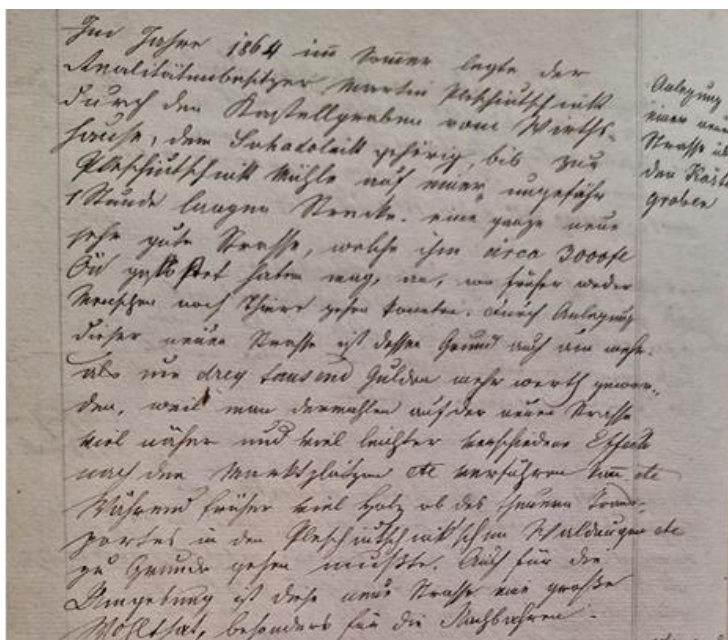 Im Jahre 1864 im Sommer legte der
Realitätenbesitzer Martin Pleschiutschnik
durch den Kastellgraben vom Wirths-
hause, dem Sohadolnik gehörig, bis zur
Pleschiutschnik Mühle auf einer, ungefähr
1 Stunde langen Strecke, eine ganze neue
sehr gute Strasse, welche ihm circa 3000 fl
gekostet haben mag, an, wo früher weder
Menschen noch Thiere gehen konnten. Durch Anlegung
dieser neuen Strasse ist dessen Grund auch um mehr
als um drey tausend Gulden mehr werth gewor-
den, weil man dermahlen auf der neuen Strasse
viel näher und viel leichter verschiedene Effecte
nach den Marktplätzen etc verführen kann etc
Während früher viel Holz ob des theuern Trans-
portes in den Pleschiutschnik'schen Waldungen etc
zu Grunde gehen mußte. Auch für die
Umgebung ist diese neue Strasse eine große
Wohlthat, besonders für die Nachbahren.
Anlegung
einer neuen
Strasse
den Kast
graben